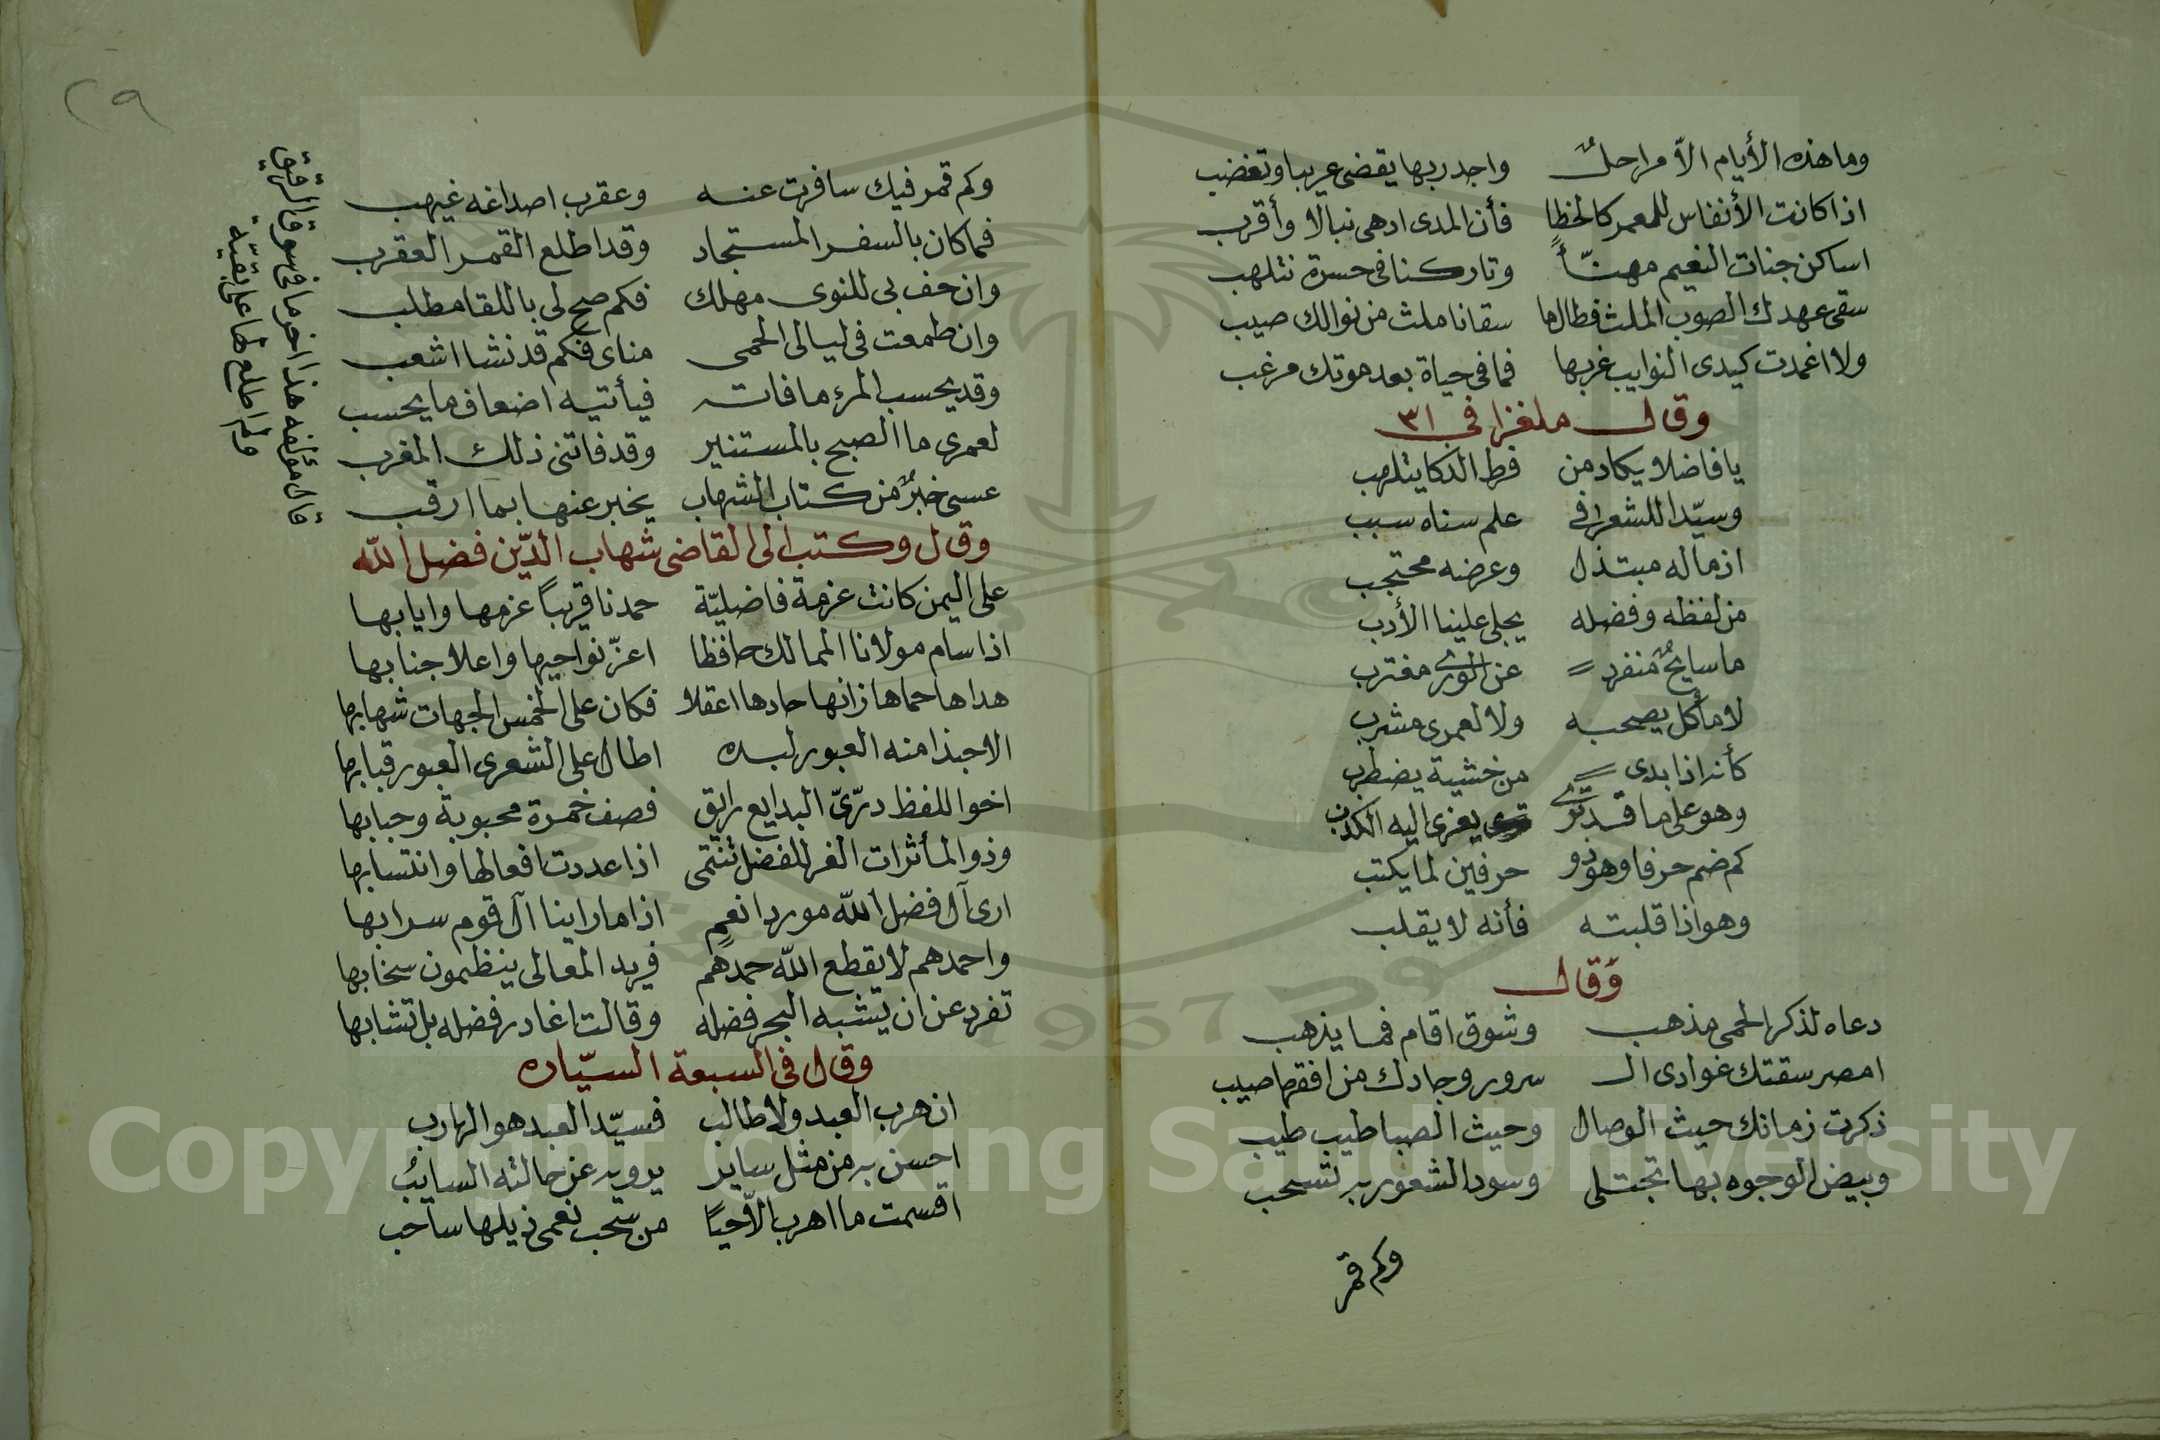 وما هذه الأيام الاّ مراحلٌ واجدر بها يقضى عريبا وتغضب
اذا كانت الأنفاس للمعمر كالخطا فأن المدى ادهى نبالا وأقرب
اساكن جنات النعيم مهنّأ وتاركنا فى حسرة نتلهب
سقى عهدك الصوب الملث فطالما سقانا ملث من نوالك صيب
ولا اغمدت كيدى النوايب غربها فما فى حياة بعد موتك مرغب
وقال ملغزا فى ٣١
يا فاضلا يكاد من فرط الذكا يتلهب
وسيّدا للشعرا فى علم سناه سبب
اذ ماله مبتذل وعرضه محتجب
من لفظه وفضله يجلى علينا الأدب
ما سايحٌ منفرد عن الورى مغترب
لا مأكل يصحبه ولا لعمرى مشرب
كأنه اذا بدى من خشية يضطرب
وهو على ما قد ترى يعزى اليه الكذب
كم ضم حرفا وهو ذو حرفين لما يكتب
وهو اذا قلبته فأنه لا يقلب
وقال
دعاه لذكر الحمى مذهب وشوق اقام فما يذهب
امصر سقتك غوادى الـ سرور وجادك من افقها صيب
ذكرت زمانك حيث الوصال وحيث الصبا طيب طيب
وبيض الوجوه بها تجتلى وسود الشعور به تسحب
وكم قمر
٢٩
وكم قمر فيك سافرت عنه وعقرب اصداغه غيهب
فما كان بالسفر المستجاد وقد اطلع القمر العقرب
وان خف بى للنوى مهلك فكم صح لى باللقا مطلب
وان طمعت فى ليالى الحمى مناى فكم قد نشا اشعب
وقد يحسب المرء ما فاته فيأتيه اضعاف ما يحسب
لعمرى ما الصبح بالمستنير وقد فاتنى ذلك المغرب
عسى خبرٌ من كتاب الشهاب يخبر عنها بما ارقب
وقال وكتب الى القاضى شهاب الدّين فضل الله
على اليمن كانت عزمة فاضليّة حمدنا قريباً عزمها وايابها
اذا سام مولانا الممالك حافظا اعزّ نواحيها واعلا جنابها
هداها حماها زانها حادها اعتلا فكان على الخمس الجهات شهابها
الا حبذا منه العبور لبده اطال على الشعرى العبور قبابها
اخو اللفظ درّىّ البدايع رايق فصف خمرة محبوبة وحبابها
وذو المأثرات الغر للفضل تنتمى اذا عددت افعالها وانتسابها
ارى آل فضل الله موردا نعمٍ اذا ما راينا آل قوم سرابها
واحمدهم لا يقطع الله حمدهم فريد المعالى ينظمون سخابها
تفرد عن ان يشبه البحر فضله وقالت اغادر فضله بل تشابها
وقال فى السبعة السيّاره
ان هرب العبد ولا طالب فسيّد العبد هو الهارب
احسن به من مثل ساير يرويه عن حالته السايبُ
اقسمت ما اهرب الاّ حيًا من سحب نعمى ذيلها ساحب
قال مؤلفه هذا اخر ما فى سوق الرقيق
ولم اطلع لها على بقيّة